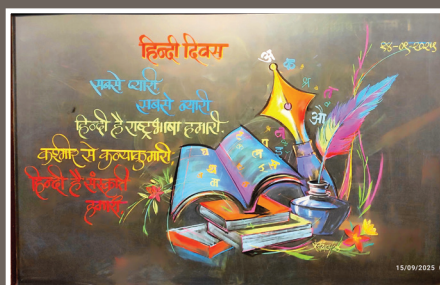 हिन्दी दिवस
१४-०९-२०२५
सबसे प्यारी
सबसे न्यारी
हिन्दी है राष्ट्रभाषा हमारी.
कश्मीर से कन्याकुमारी,
हिन्दी है संस्कृती
हमारी.
अ
औ
15/09/2025